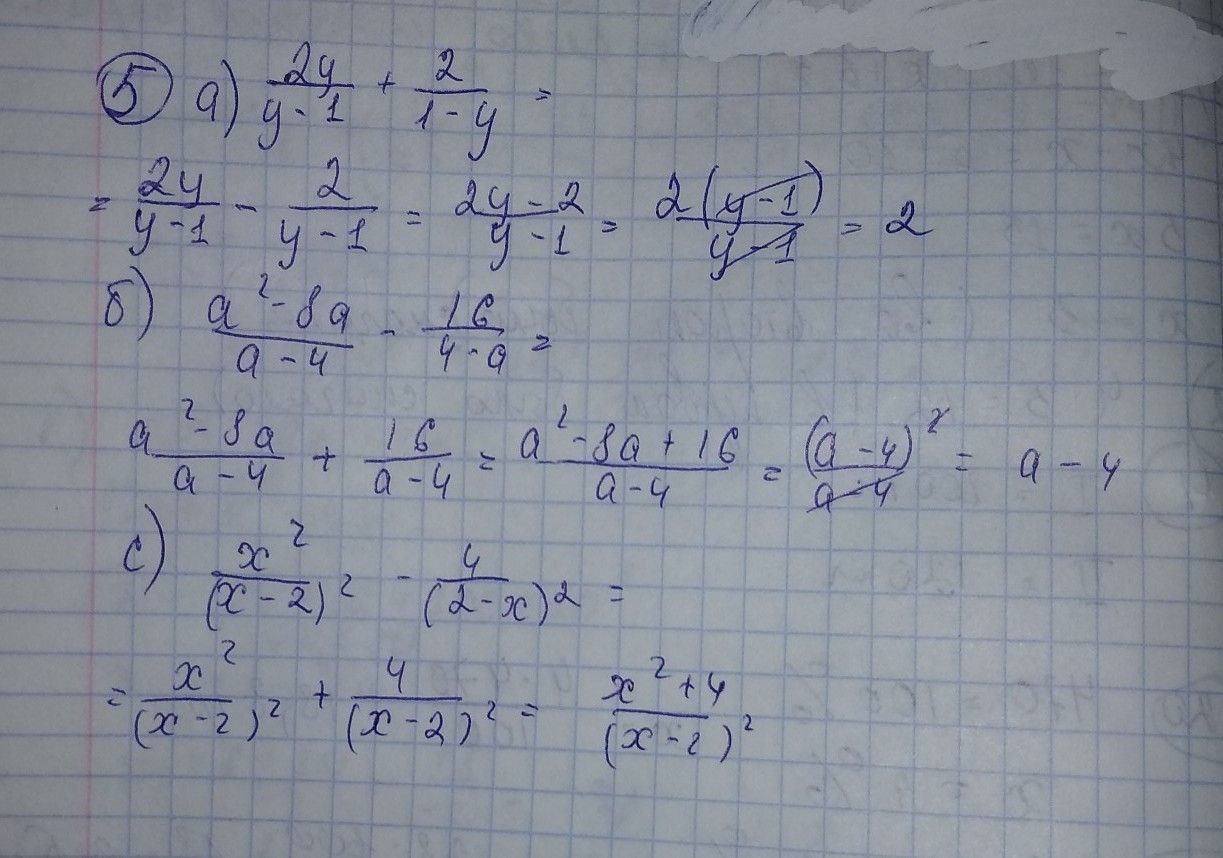 5 а) 2y/(y-1) + 2/(1-y) =
= 2y/(y-1) - 2/(y-1) = (2y-2)/(y-1) = 2(y-1)/(y-1) = 2
б) (a²-8a)/(a-4) - 16/(4-a) =
(a²-8a)/(a-4) + 16/(a-4) = (a²-8a+16)/(a-4) = (a-4)²/(a-4) = a-4
с) x²/(x-2)² - 4/(2-x)² =
= x²/(x-2)² + 4/(x-2)² = (x²+4)/(x-2)²